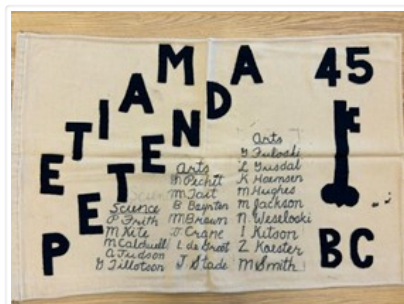 ETIAM
PETENDA
45
BC
Science
P Frith
M Kite
M Caldwell
A Judson
G Tillotson
Arts
M Pechet
M Tait
B Boynton
M Brown
J Crane
L de Groot
J Stade
Arts
L Gusdal
K Hoemsen
M Hughes
M Jackson
N. Weseloski
I Kitson
Z Koester
M Smith